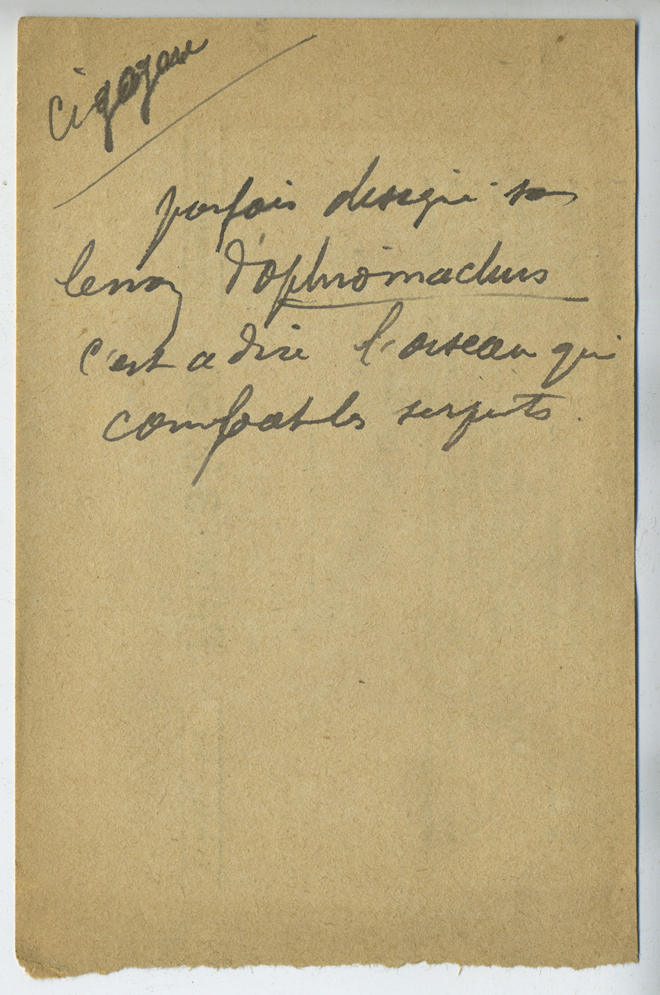 cigogne
parfois désigné
d'ophiomachus
c'est a dire l'oiseau qui
combat les serpents.